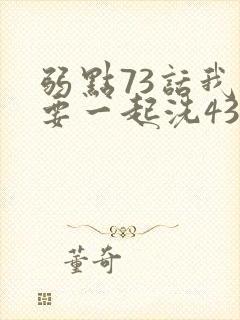 弱點73話我
要一起洗43
董奇